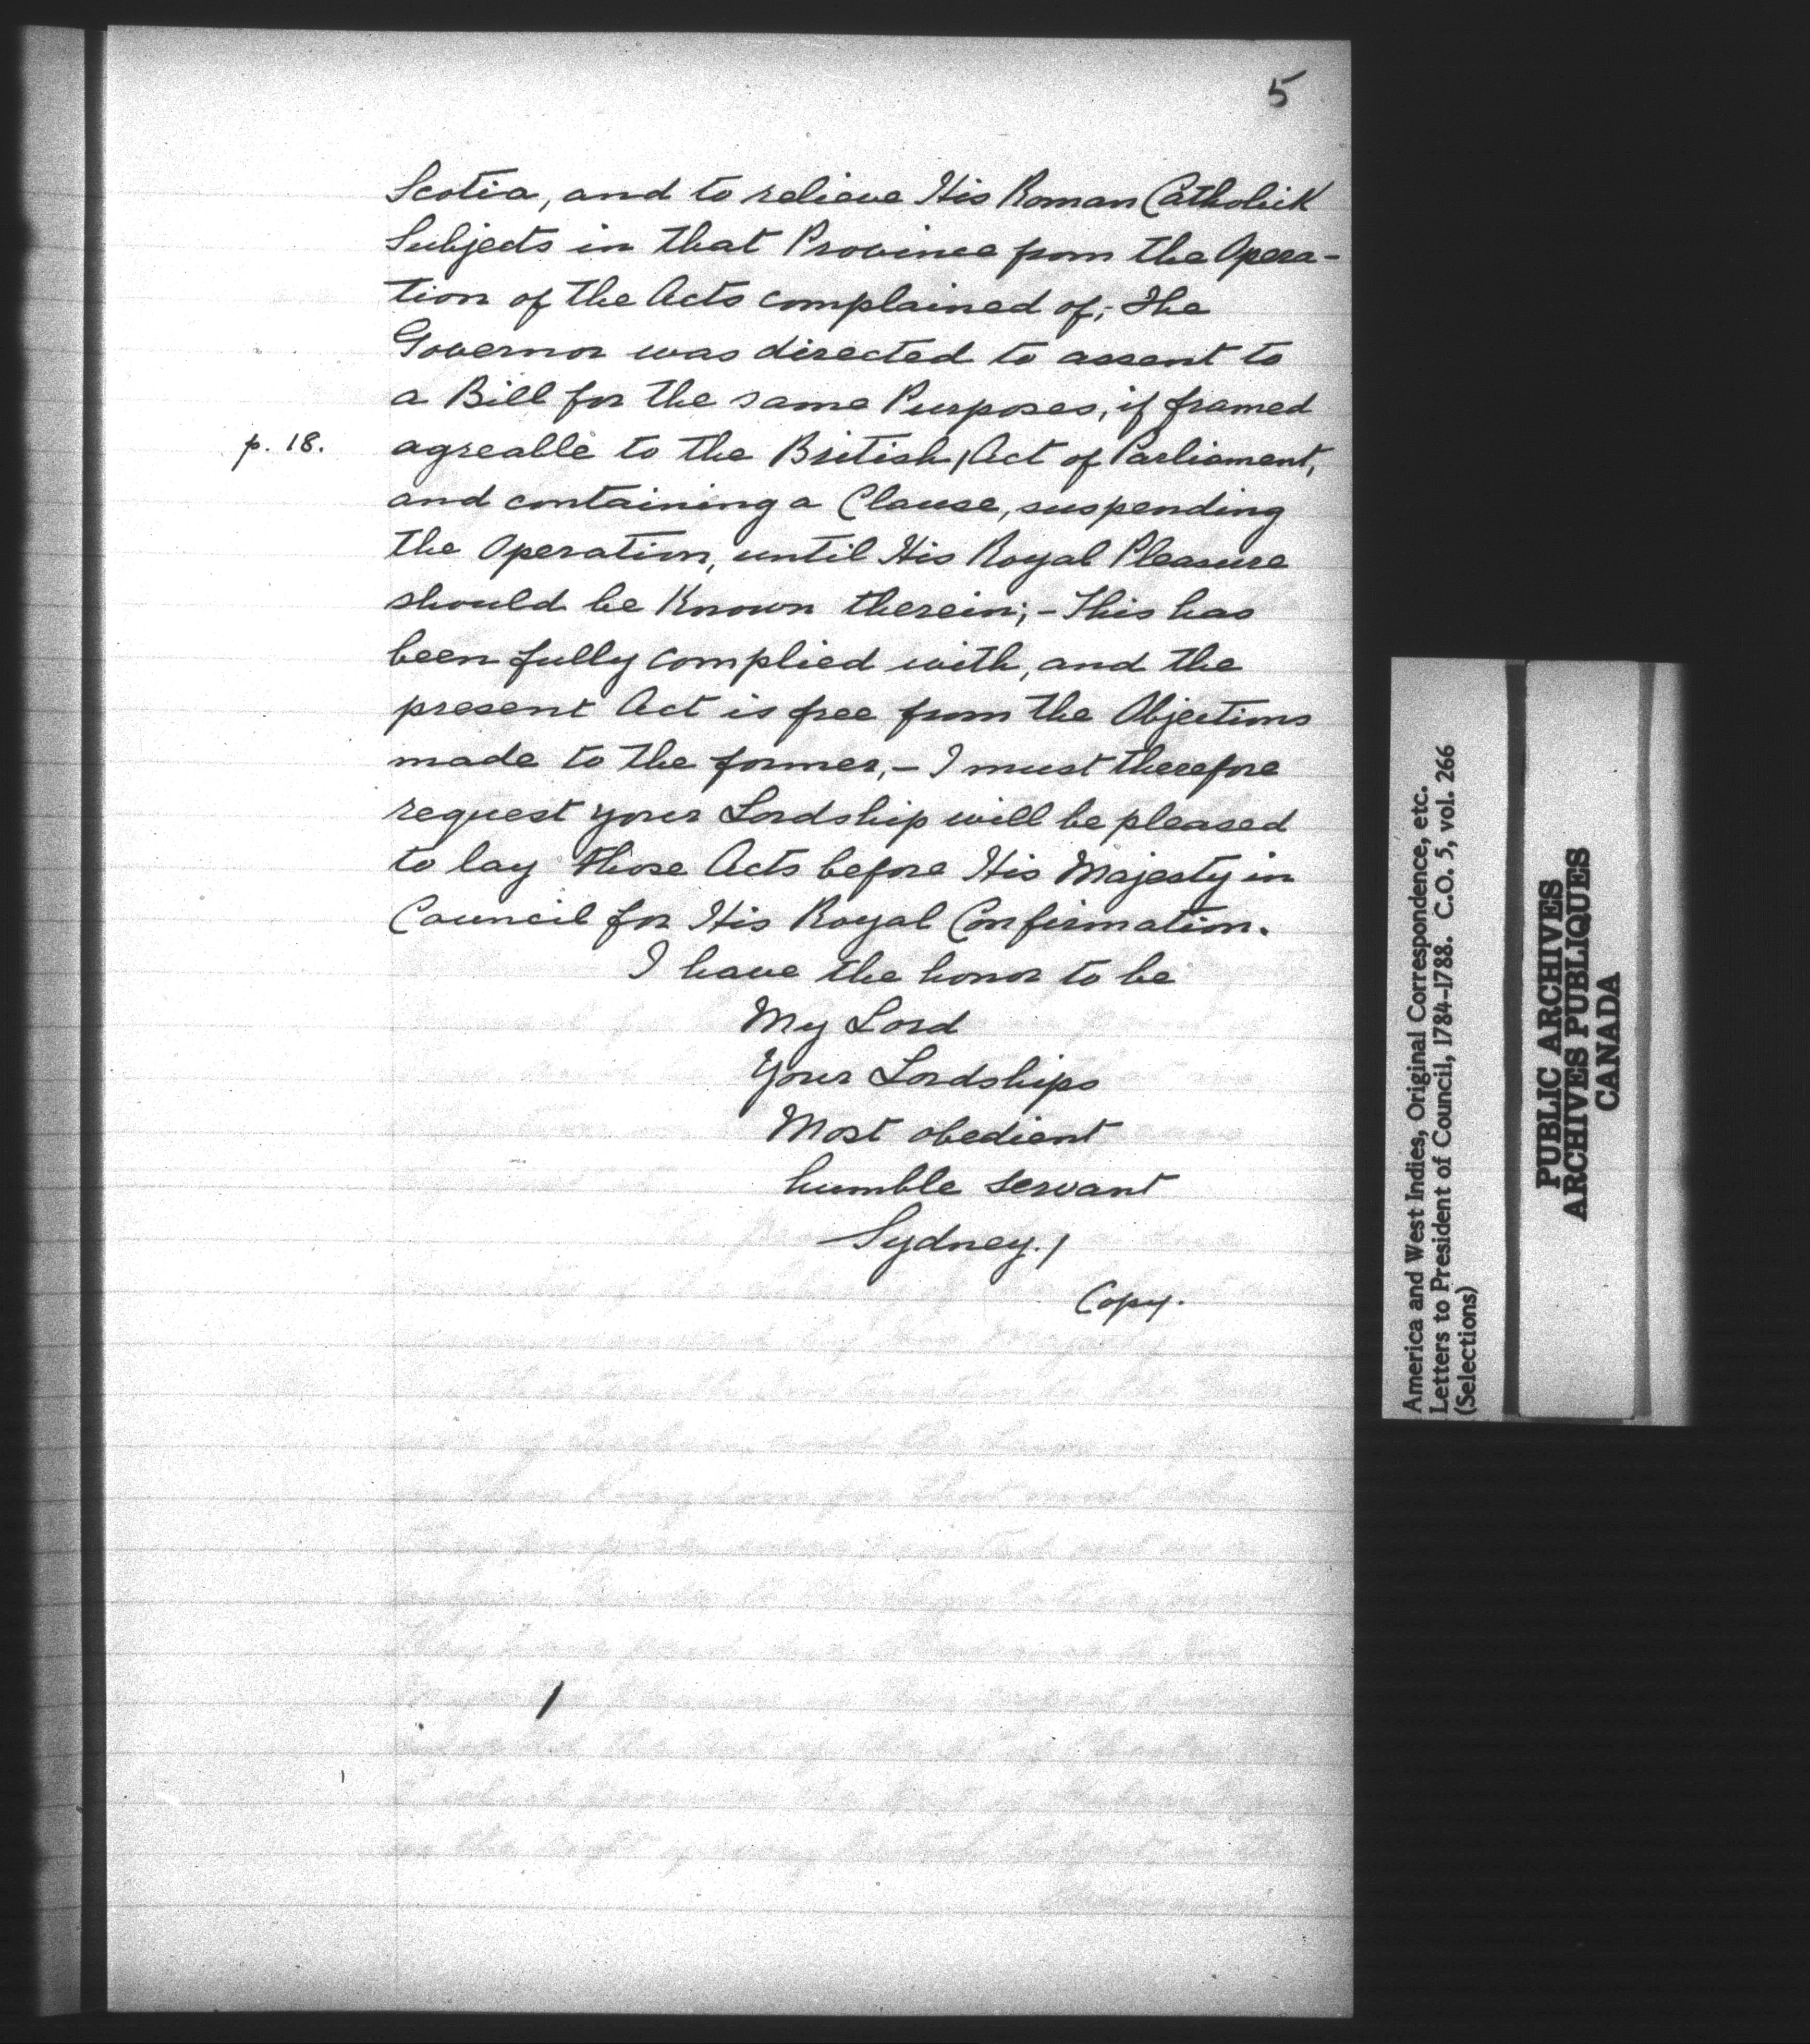 5
Scotia, and to relieve His Roman Catholick
Subjects in that Province from the Opera-
tion of the Acts complained of; The
Governor was directed to assent to
a Bill for the same Purposes, if framed
p. 18. agreable to the British, Act of Parliament,
and containing a Clause, suspending
the Operation, until His Royal Pleasure
should be Known therein; - This has
been fully complied with, and the
present Act is free from the Objections
made to the former, - I must therefore
request your Lordship will be pleased
to lay those Acts before His Majesty in
Council for His Royal Confirmation.
I have the honor to be
My Lord
Your Lordships
Most obedient
humble servant
Sydney./
Copy.
America and West Indies, Original Correspondence, etc.
Letters to President of Council, 1784-1788. C.O. 5, vol. 266
(Selections)
PUBLIC ARCHIVES
ARCHIVES PUBLIQUES
CANADA